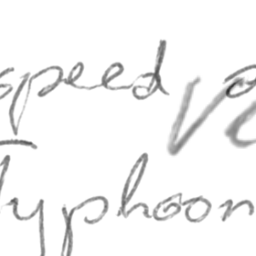 speed
Typhoon